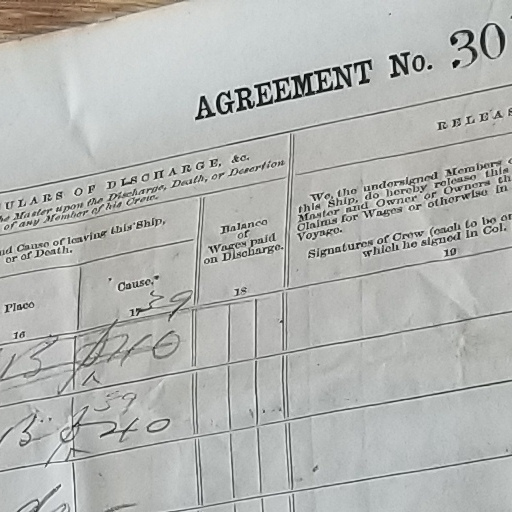 AGREEMENT No. 30
RELEAS
ULARS OF DISCHARGE, &c.
he Master upon the Discharge, Death, or Desertion
of any Member of his Crew.
nd Cause of leaving this Ship,
or of Death.
Place
16
Cause.*
17
Balance
of
Wages paid
on Discharge.
18
We, the undersigned Members o
this Ship, do hereby release this
Master and Owner or Owners th
Claims for Wages or otherwise in
Voyage.
Signatures of Crew (each to be on
which he signed in Col.
19
39
240
59
240